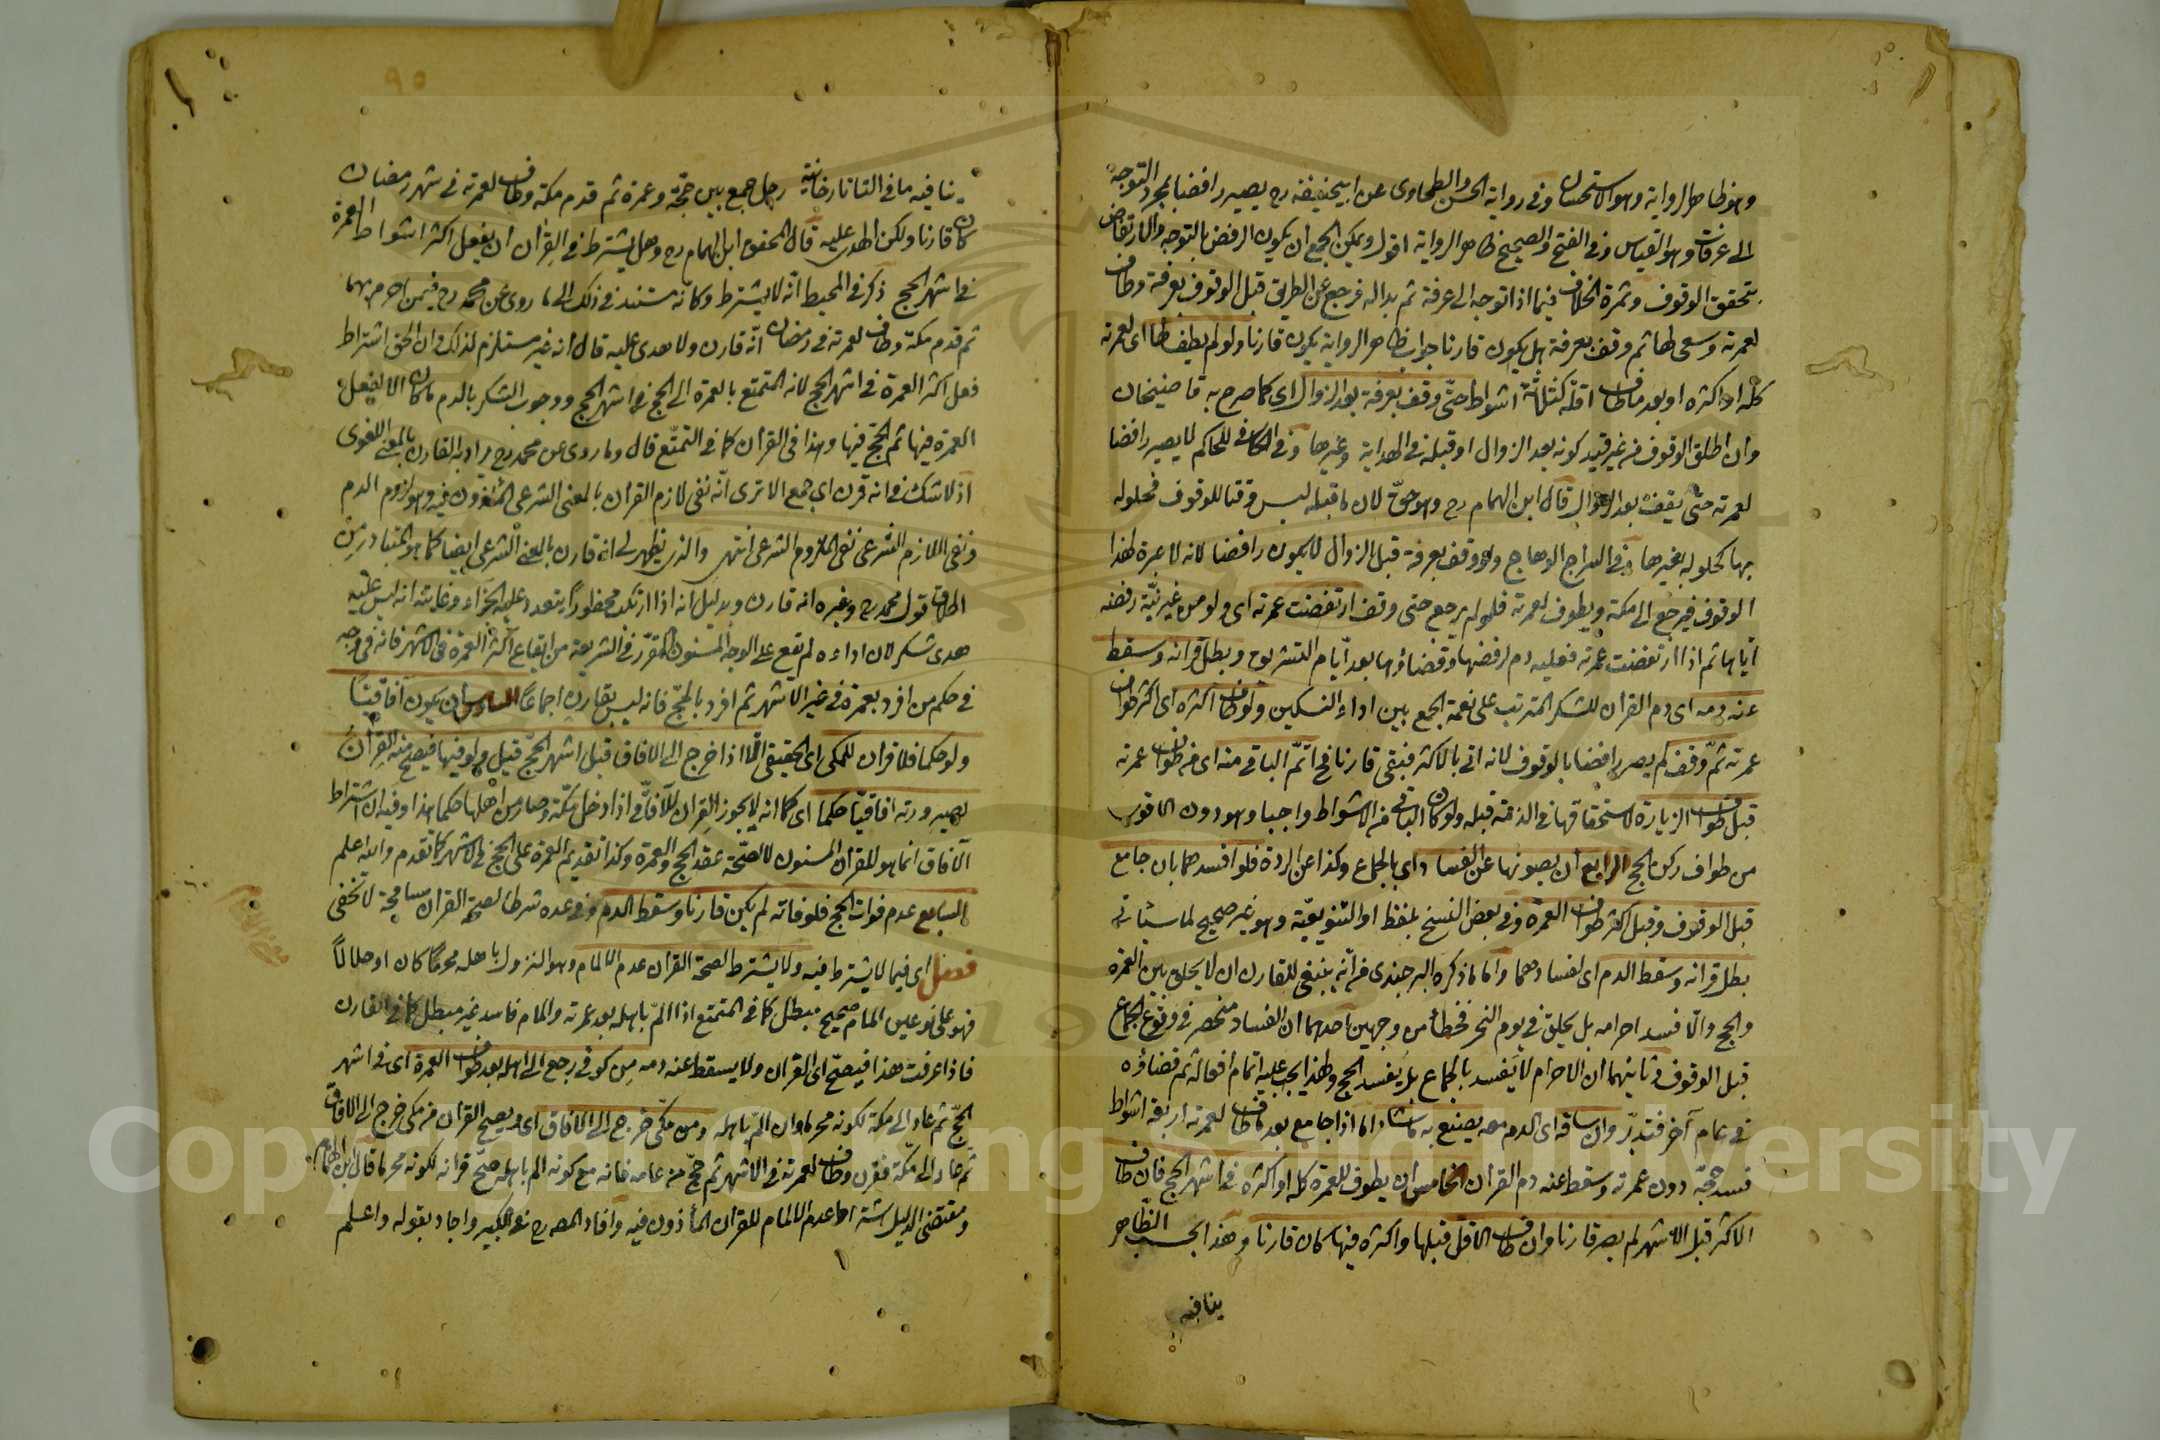 وهو ظاهر الرواية وهو الاستحسان وفى رواية الحسن والطحاوى عن ابيحنيفة رح يصير رافضا بمجرد التوجه
الى عرفات وهو القياس وفى الفتح والصحيح ظاهر الرواية اقول ويمكن الجمع ان يكون الرفض بالتوجه والارتفاض
بتحقق الوقوف وثمرة الخلاف فيما اذا توجه الى عرفة ثم بدا له فرجع عن الطريق قبل الوقوف بعرفة وطاف
لعمرته وسعى لها ثم وقف بعرفة هل يكون قارنا جواب ظاهر الرواية يكون قارنا ولو لم يطف لها اى لعمرته
كله او اكثره او بعد ما طاف اقله كثلاثة اشواط حتى وقف بعرفة بعد الزوال اى كما صرح به قاضيخان
وان اطلق الوقوف من غير قيد كونه بعد الزوال او قبله فى الهداية وغيرها وفى الكافى للحاكم لا يصير رافضا
لعمرته حتى يقف بعد الزوال قال ابن الهمام رح وهو حق لان ما قبله ليس وقتا للوقوف فحلوله
بها كحلوله بغيرها وفى السراج الوهاج ولو وقف بعرفة قبل الزوال لا يكون رافضا لانه لا عبرة لهذا
الوقوف فيرجع الى مكة ويطوف لعمرته فلو لم يرجع حتى وقف ارتفضت عمرته اى ولو من غير نية رفضه
اياها ثم اذا ارتفضت عمرته فعليه دم لرفضها وقضاؤها بعد ايام التشريق وبطل قرانه وسقط
عنه دمه اى دم القران للشكر المترتب على نعمة الجمع بين اداء النسكين ولو طاف اكثره اى اكثر طواف
عمرته ثم وقف لم يصر رافضا بالوقوف لانه اتى بالاكثر فبقى قارنا فح اتم الباقى منه اى من طواف عمرته
قبل طواف الزيارة لاستحقاقها فى الذمة قبله ولو كان الباقى من الاشواط واجبا وهو دون الاقوى
من طواف ركن الحج الرابع ان يصونها عن الفساد اى بالجماع وكذا عن الردة فلو افسدهما بان جامع
قبل الوقوف وقبل اكثر طواف العمرة وفى بعض النسخ بلفظ او التنويعية وهو غير صحيح لما سيأتى
بطل قرانه وسقط الدم اى لفسادهما واما ما ذكره البرجندى من انه ينبغى للقارن ان لا يحلق بين العمرة
والحج والا فسد احرامه بل يحلق فى يوم النحر فخطأ من وجهين احدهما ان الفساد منحصر فى وقوع الجماع
قبل الوقوف وثانيهما ان الاحرام لا يفسد بالجماع بل يفسد الحج ولهذا يجب عليه اتمام افعاله ثم قضاؤه
فى عام آخر فتدبر وان ساقه اى الدم معه يصنع به ما شاء اما اذا جامع بعد ما طاف لعمرته اربعة اشواط
فسد حجته دون عمرته وسقط عنه دم القران الخامس ان يطوف للعمرة كله او اكثره فى اشهر الحج فان طاف
الاكثر قبل الاشهر لم يصر قارنا وان طاف الاقل قبلها واكثره فيها كان قارنا وهذا بحسب الظاهر
ينافيه
ينافيه ما فى التاتارخانية رجل جمع بين حجة وعمرة ثم قدم مكة وطاف لعمرته فى شهر رمضان
كان قارنا ولكن لا هدى عليه قال المحقق ابن الهمام رح وهل يشترط فى القران ان يفعل اكثر اشواط العمرة
فى اشهر الحج ذكر فى المحيط انه لا يشترط وكانه مستند فى ذلك الى ما روى عن محمد رح فيمن احرم بهما
ثم قدم مكة وطاف لعمرته فى رمضان انه قارن ولا هدى عليه قال انه غير مستلزم لذلك وان الحق اشتراط
فعل اكثر العمرة فى اشهر الحج لانه المتمتع بالعمرة الى الحج فى اشهر الحج ووجوب الشكر بالدم ما كان الا لفعل
العمرة فيها ثم الحج فيها وهذا فى القران كما فى التمتع قال وما روى عن محمد رح اراد به القارن بالمعنى اللغوى
اذ لا شك فى انه قرن اى جمع الا ترى انه نفى لازم القران بالمعنى الشرعى المأذون فيه وهو لزوم الدم
ونفى اللازم الشرعى نفى الملزوم الشرعى انتهى والذى يظهر لى انه قارن بالمعنى الشرعى ايضا كما هو المتبادر من
اطلاق قول محمد رح وغيره انه قارن وبدليل انه اذا ارتكب محظورا يتعدد عليه الجزاء وغايته انه ليس عليه
هدى شكر لان اداءه لم يقع على الوجه المسنون المقرر فى الشريعة من ايقاع اكثر العمرة فى الاشهر فانه فى وجه
فى حكم من افرد بعمرة فى غير الاشهر ثم افرد بالحج فانه ليس بقارن اجماعا السادس ان يكون آفاقيا
ولو حكما فلا قران للمكى اى الحقيقى الا اذا خرج الى الآفاق قبل اشهر الحج قيل ولو فيها فيصح منه القران
لصيرورته افاقيا حكما اى كما انه لا يجوز القران للآفاقى اذا دخل مكة وصار من اهلها حكما هذا وفيه ان اشتراط
الآفاق انما هو للقران المسنون لا لصحة عقد الحج والعمرة وكذا تقديم العمرة على الحج فى الاشهر كما تقدم والله اعلم
السابع عدم فوات الحج فلو فاته لم يكن قارنا وسقط الدم وفى عده شرطا لصحة القران مسامحة لا تخفى
فصل اى فيما لا يشترط فيه ولا يشترط لصحة القران عدم الالمام وهو النزول باهله محرما كان او حلالا
فهو على نوعين المام صحيح مبطل كما فى المتمتع اذا الم باهله بعد عمرته والمام فاسد غير مبطل كما فى القارن
فاذا عرفت هذا فيصح اى القران ولا يسقط عنه دمه من كوفى رجع الى اهله بعد طواف العمرة اى فى اشهر
الحج ثم عاد الى مكة لكونه محرما وان الم باهله ومن مكى خرج الى الآفاق اى ويصح القران من مكى خرج الى الآفاق
ثم عاد الى مكة فقرن وطاف لعمرته فى الاشهر ثم حج من عامه فانه مع كونه الم باهله صح قرانه لكونه محرما قال ابن الهمام
ومقتضى الدليل اشتراط عدم الالمام للقران المأذون فيه وافاد المصرح فى الكبير واجاد بقوله واعلم